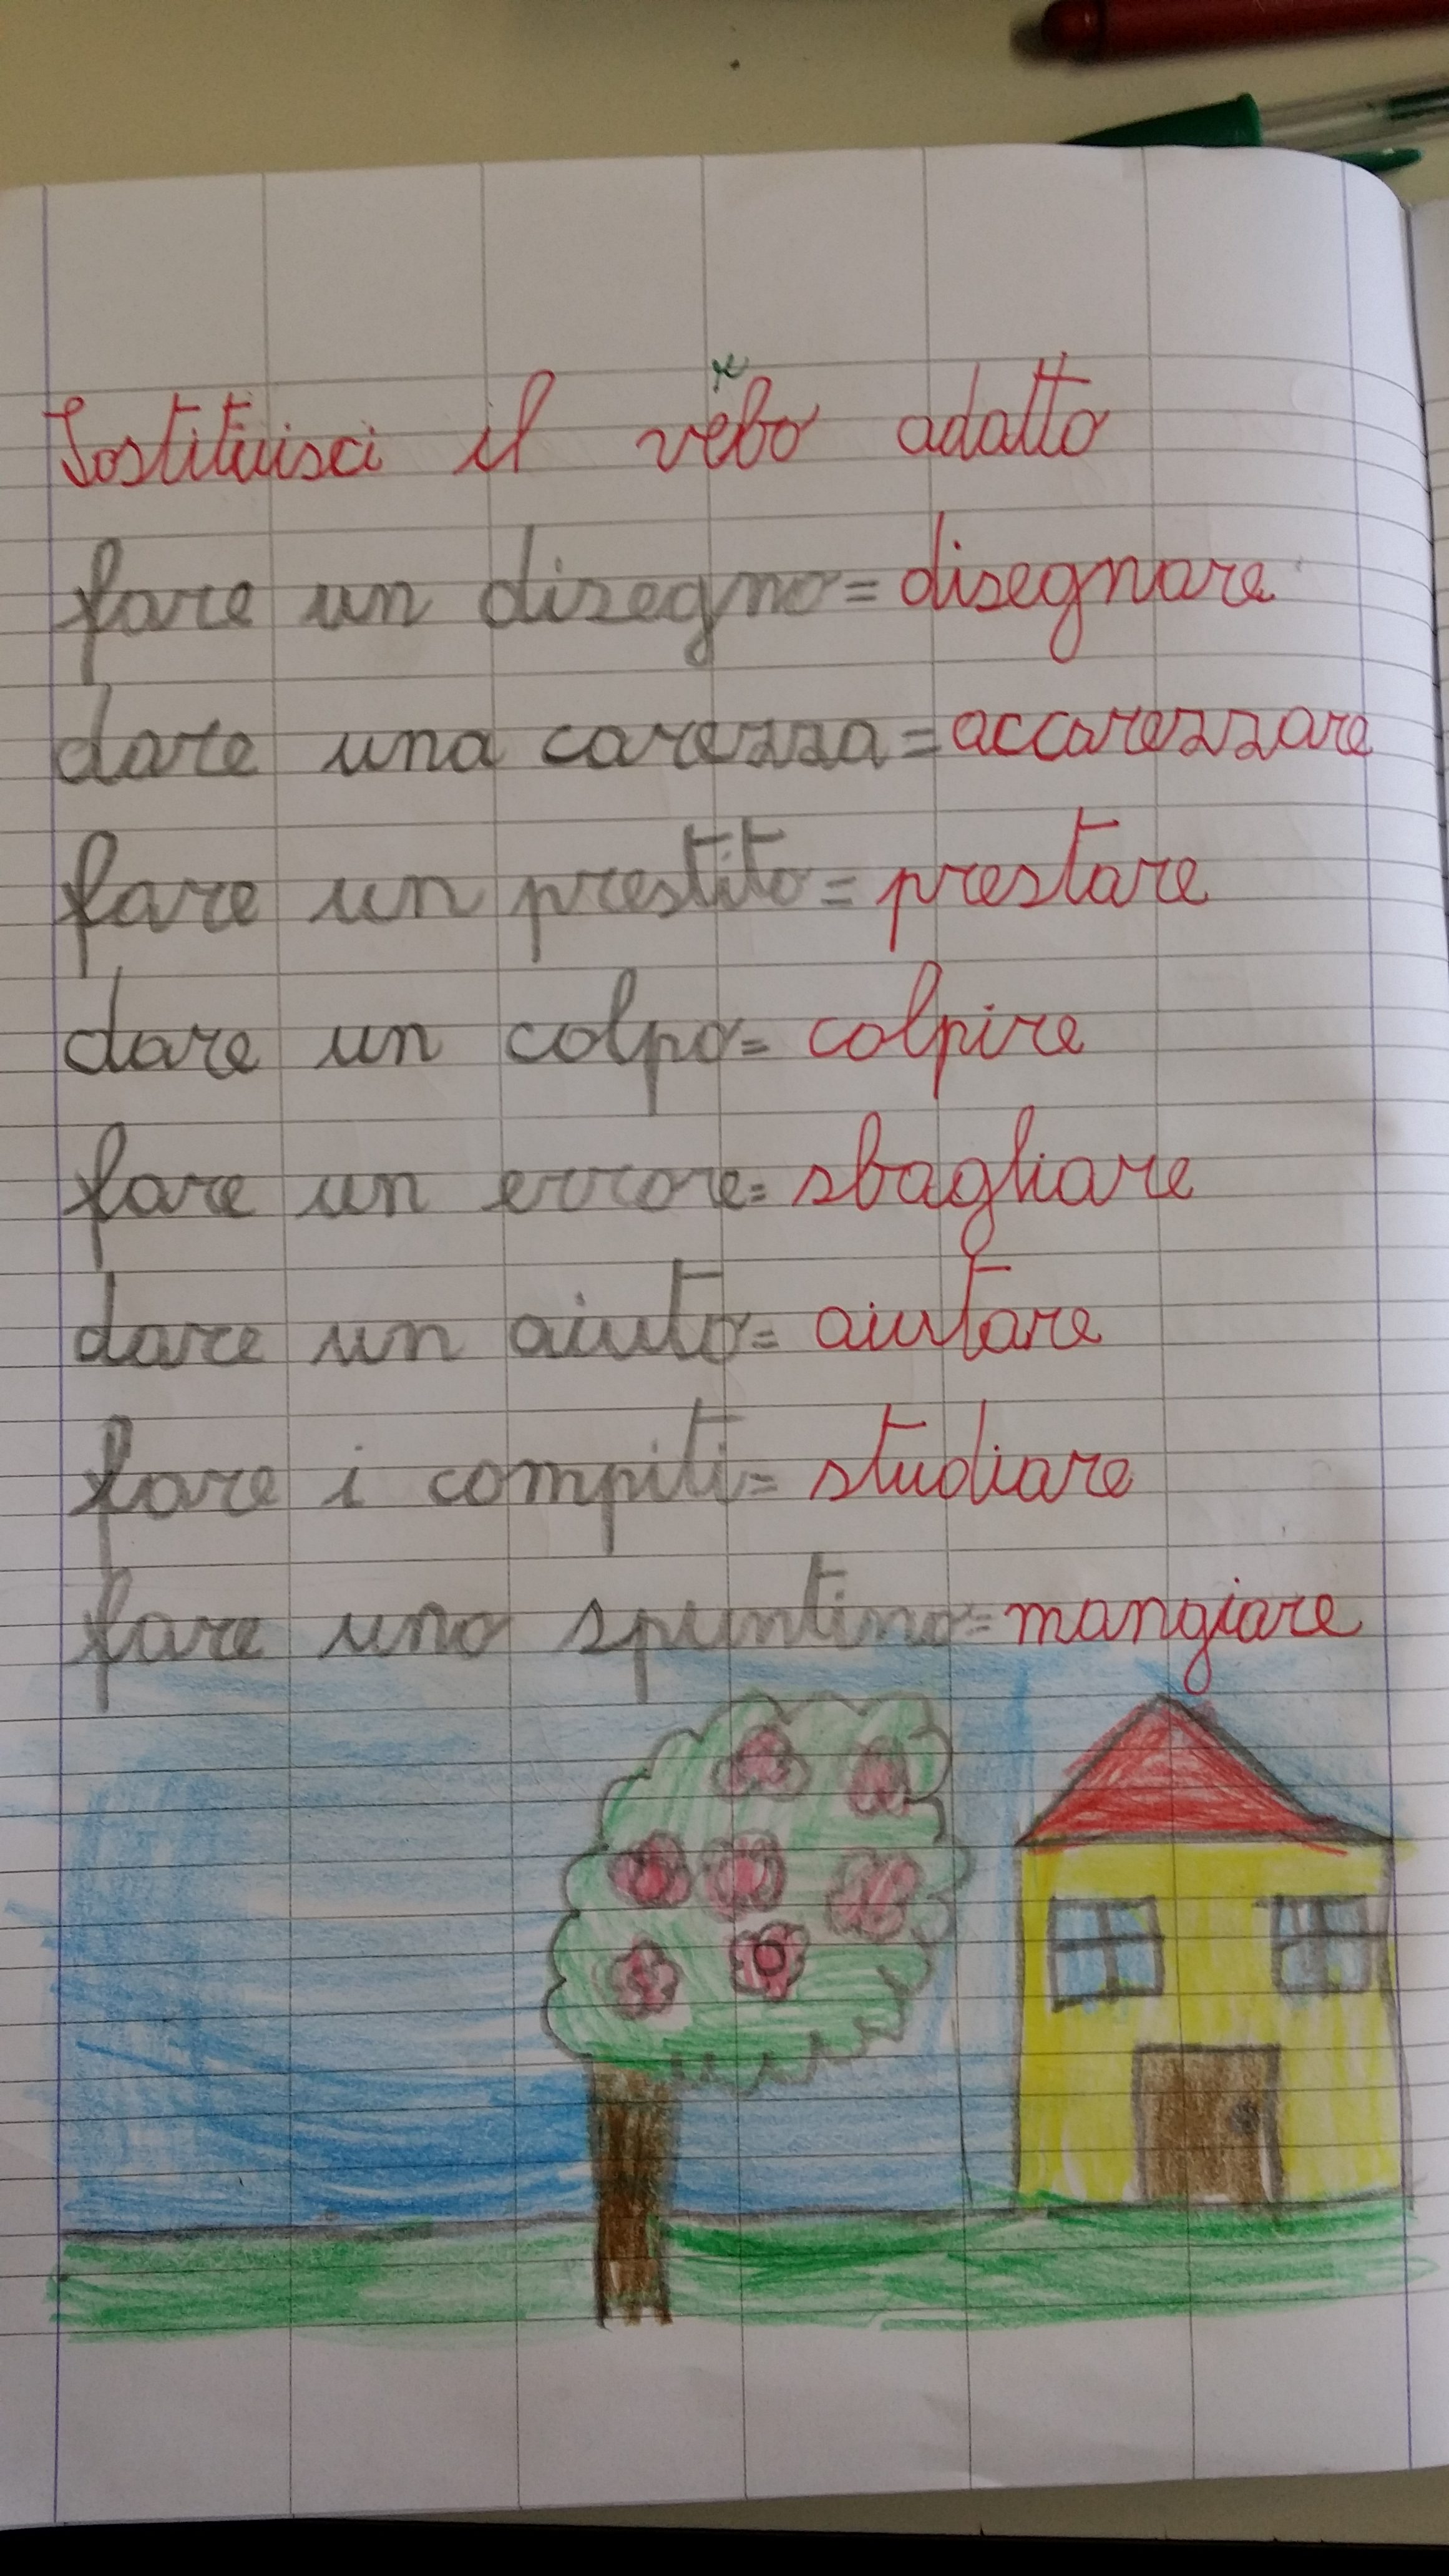 Sostituisci il verbo adatto
fare un disegno = disegnare
dare una carezza = accarezzare
fare un prestito = prestare
dare un colpo = colpire
fare un errore = sbagliare
dare un aiuto = aiutare
fare i compiti = studiare
fare uno spuntino = mangiare